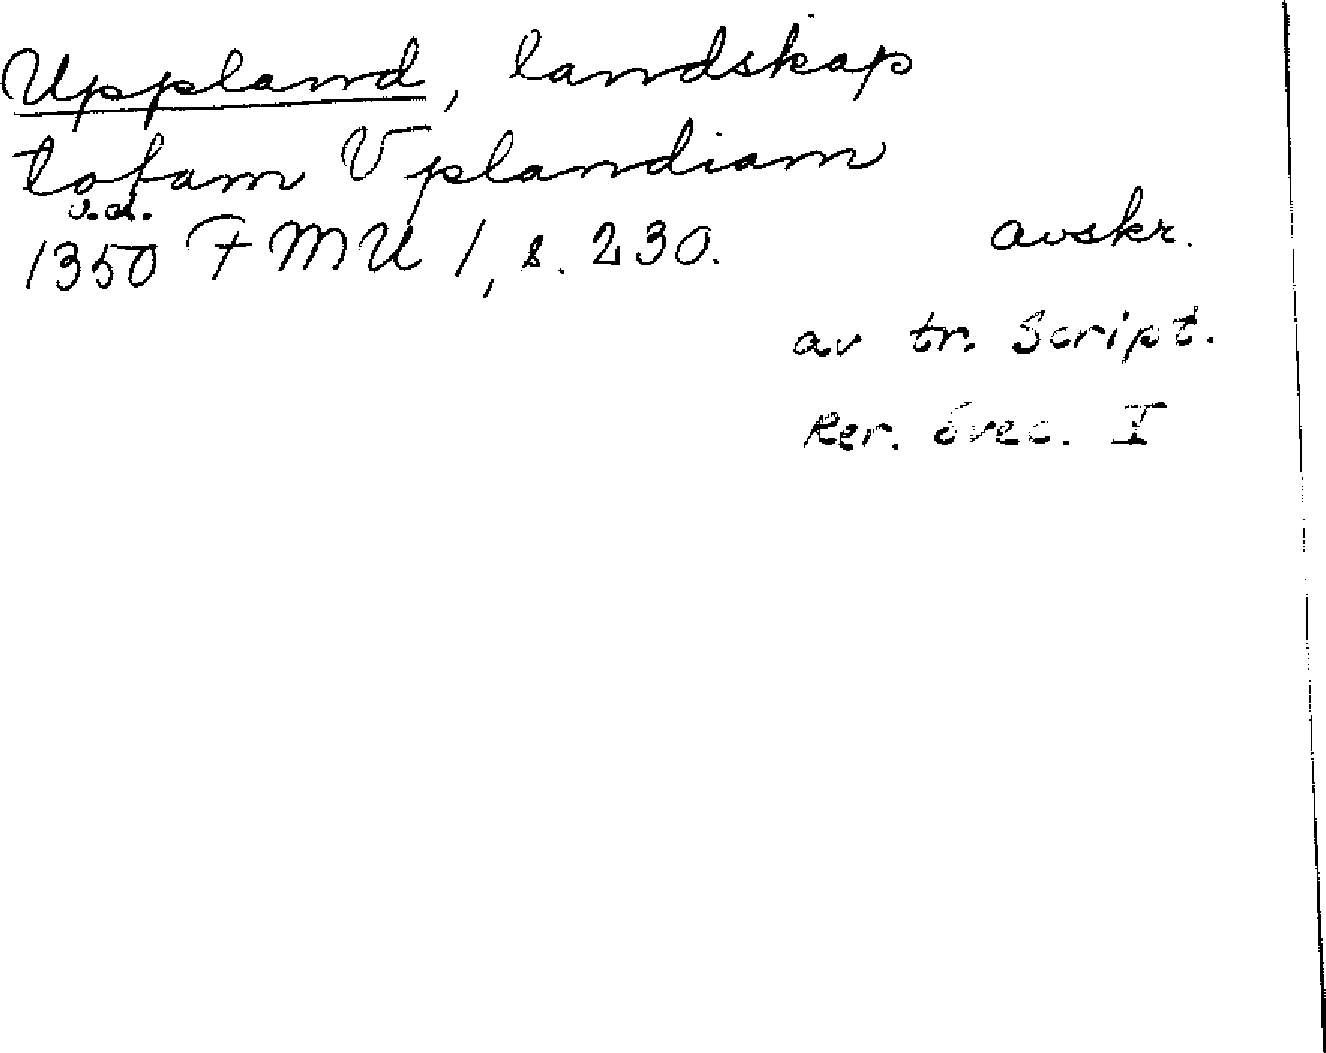 Uppland, landskap
totam Vplandiam
s.d.
1350 FMU 1, s. 230. avskr.
av tr. Script.
Rer. Svec. I